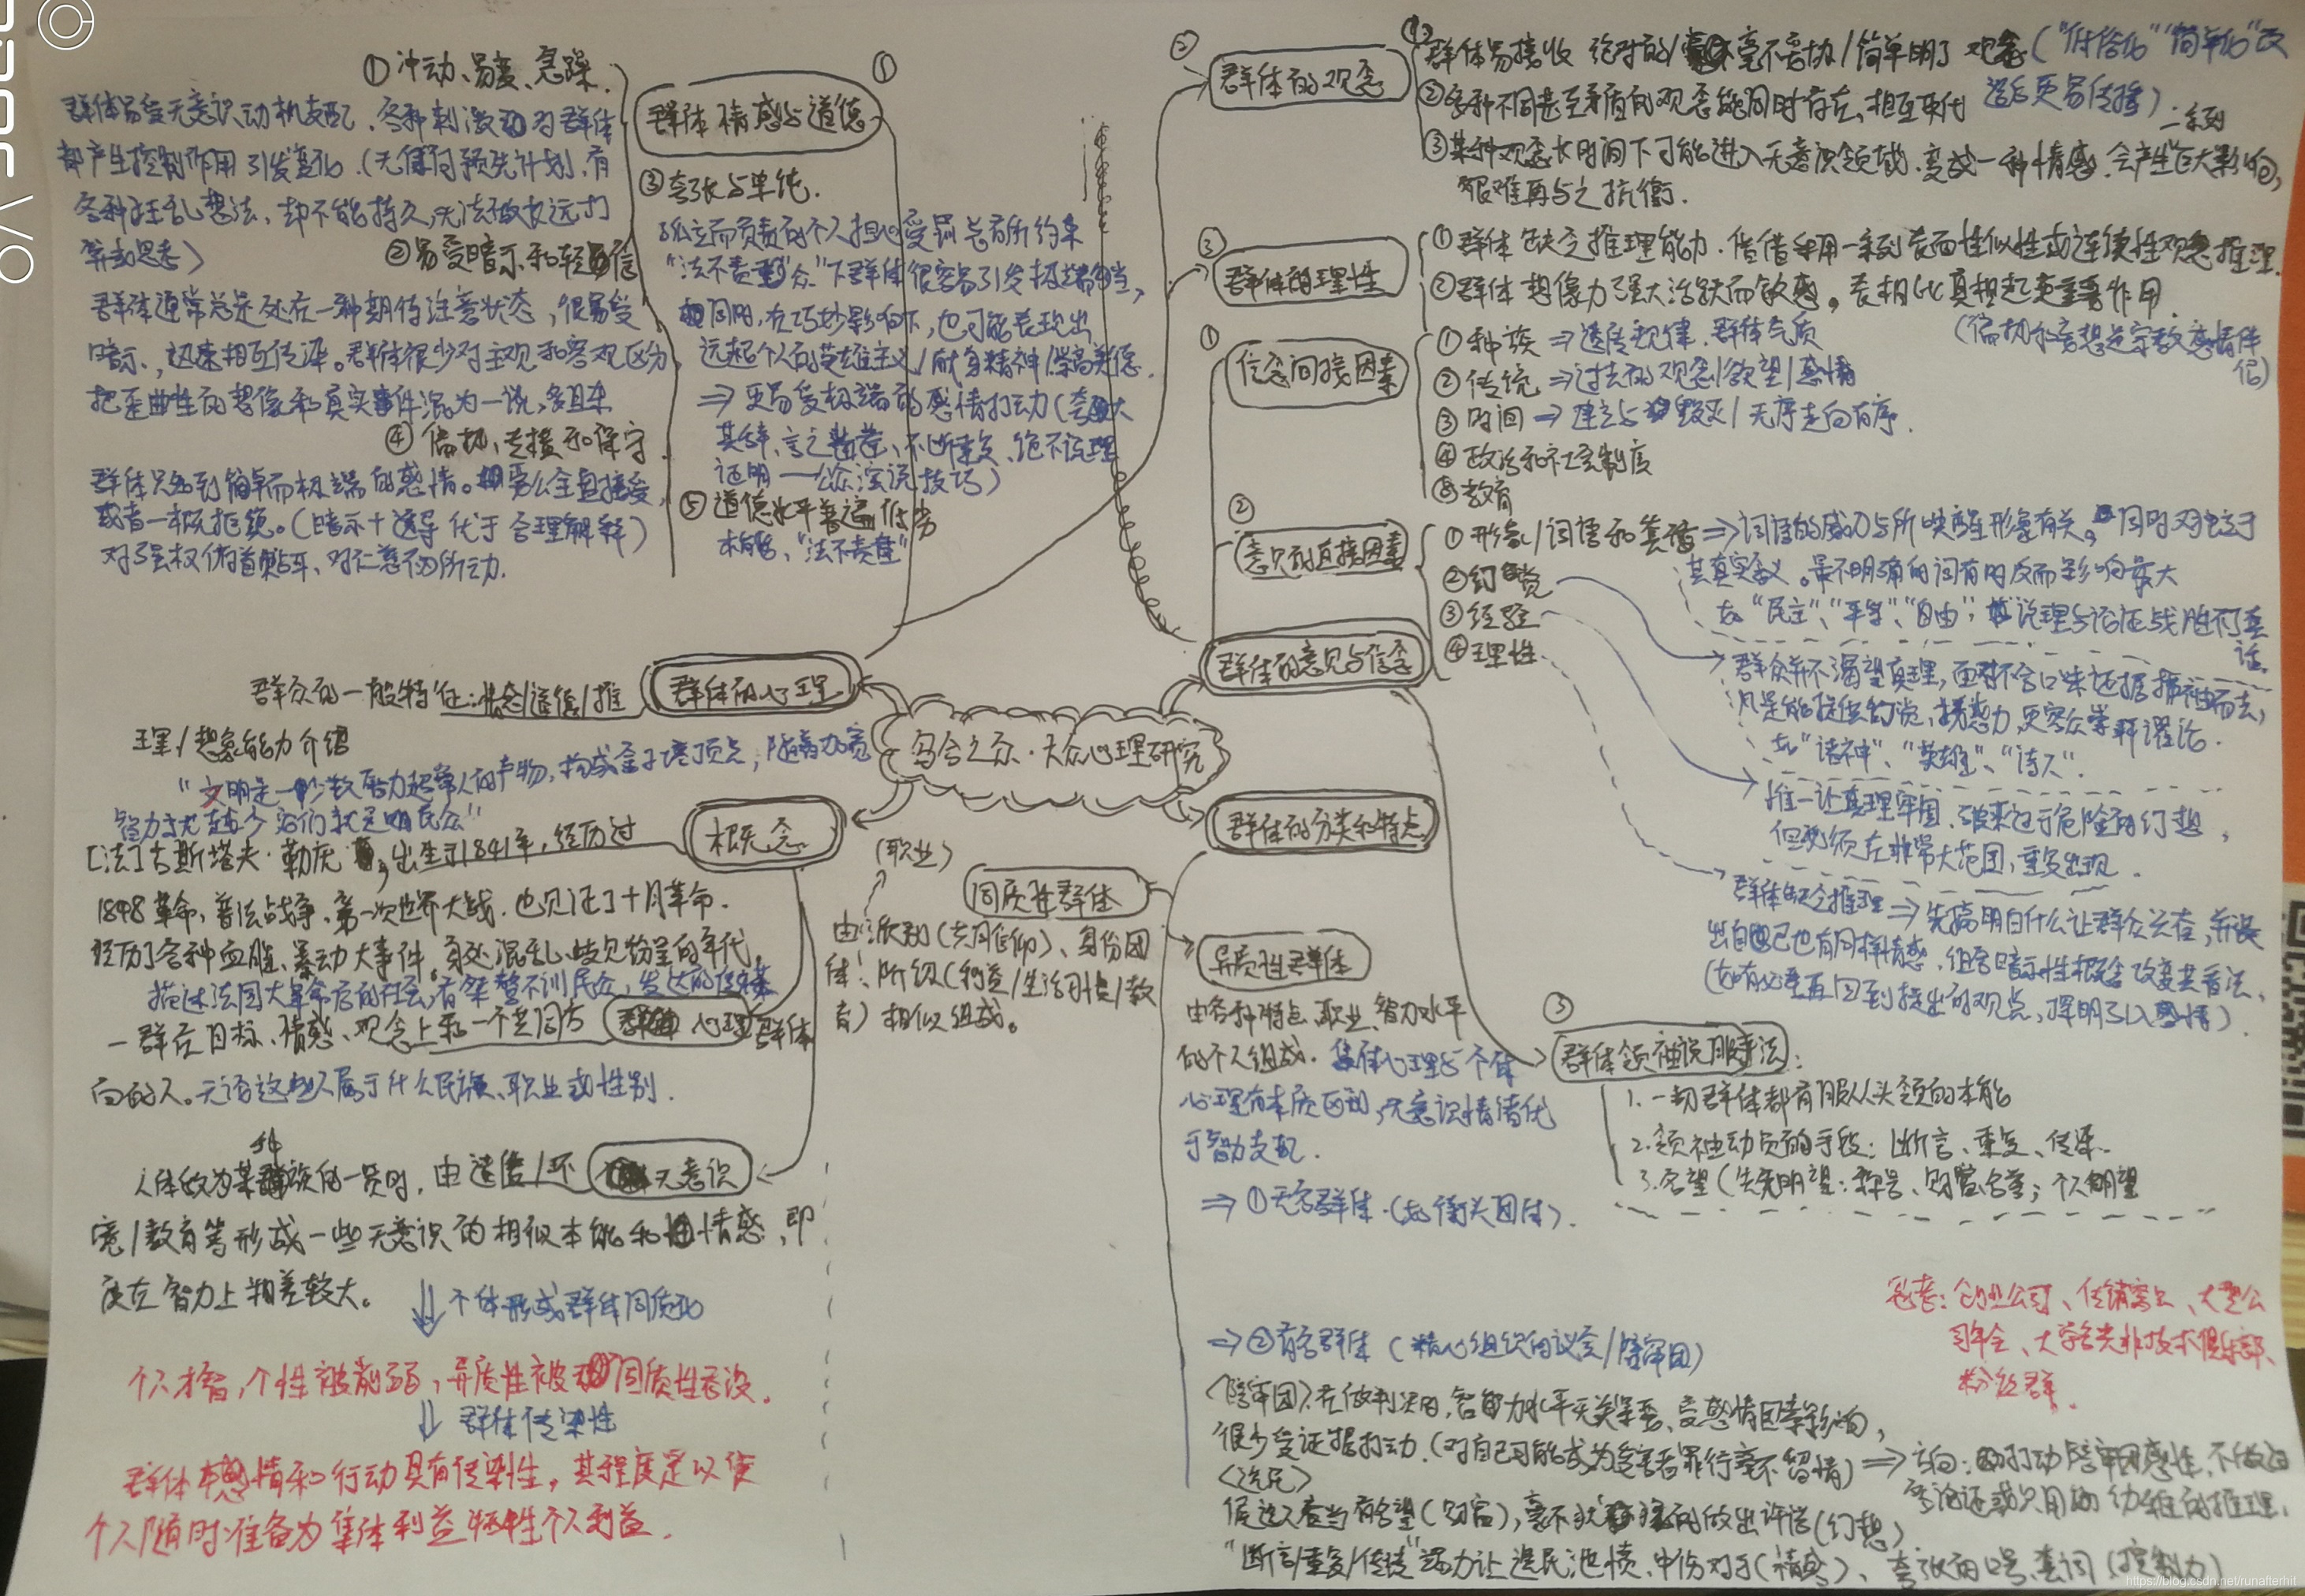 乌合之众·大众心理研究
群体的心理
群众的一般特征：状态/道德/推
理/想象能力介绍
群体情感与道德
①冲动、易变、急躁.
群体易受无意识动机支配、各种刺激动对群体
都产生控制作用引发变化.(无任何预先计划,有
各种狂乱想法,却不能持久,无法做长远打
算或思考)
②易受暗示和轻信
群体通常总是处在一种期待注意状态,很易受
暗示,迅速相互传染。群体很少对主观和客观区分,
把歪曲性的想像和真实事件混为一谈,
③夸张与单纯.
孤立而负责的个人担心受罚总有所约束
"法不责众"下群体很容易引发极端勾当,
同时,在巧妙影响下,也可能表现出
远超个人的英雄主义/献身精神/崇高美德.
⇒更易受极端的感情打动(夸大
其辞、言之凿凿、不断重复、绝不说理
证明——公众演说技巧)
④偏执、专横和保守
群体只知到简单而极端的感情。要么全盘接受,
或者一概拒绝。(暗示+误导优于合理解释)
对强权俯首贴耳、对仁慈不为所动.
⑤道德水平普遍低劣
本能、"法不责重"
②
群体的观念
①群体易接收绝对的/毫不妥协/简单明了观念("低俗化""简单化"改
造后更易传播)
②各种不同甚至矛盾的观念能同时存在、相互取代
③某种观念长时间下可能进入无意识领域.变成一种情感.会产生巨大影响,
艰难再与之抗衡.
③
群体的理性
①群体缺乏推理能力.借借利用一系列表面性似性或连续性观念推理.
②群体想像力强大活跃而敏感。表相比真相起更重要作用.
(偏执和妄想是宗教感情伴侣)
群体的意见与信念
①
信念间接因素
①种族⇒遗传规律.群体气质
②传统⇒过去的观念/欲望/感情
③时间⇒建立与毁灭/无序走向有序.
④政治和社会制度
⑤教育
②
意见的直接因素
①形象/词语和套话⇒词语的威力与所唤醒形象有关,同时对独立于
其真实含义。最不明确的词有时反而影响最大
如"民主"、"平等"、"自由",说理与论证战胜不了套
话.
②幻觉
群众并不渴望真理,面对不合口味证据拂袖而去,
凡是能提供幻觉、诱惑力,更容众崇拜谬论.
如"诸神"、"英雄"、"诗人".
③经验
唯一让真理牢固、破灭过于危险的幻想,
但必须在非常大范围,重复出现.
④理性
群体缺乏推理⇒先搞明白什么让群众兴奋,并装
出自己也有同样情感,组合暗示性概念改变其看法,
(如有必要再回到提出的观点,挥明引入感情).
③
群体领袖说服手法:
1.一切群体都有服从头领的本能
2.领袖动员的手段:断言、重复、传染.
3.名望(先先明望:称号、财富名誉;个人明望
概念
"文明是一少数智力超常人的产物,构成金子塔顶点;随着加宽
智力就越少,它们就是民众"
[法]古斯塔夫·勒庞,出生于1841年,经历过
1848革命,普法战争、第一次世界大战.也见证了十月革命.
经历了各种血腥、暴动大事件。身处混乱、歧见纷呈的年代.
描述法国大革命后的社会,有桀骜不训民众,
心理群体
一群在目标、情感、观念上和一个共同方
向的人。无论这些人属于什么民族、职业或性别.
无意识
人体做为某种族的一员时,由遗传/环
境/教育等形成一些无意识的相似本能和情感,即
使在智力上相差较大。
⇓个体形成群体同质化
个人才智,个性被削弱,异质性被同质性吞没.
⇓群体传染性
群体中感情和行动具有传染性,其程度足以使
个人随时准备为集体利益牺牲个人利益.
群体的分类和特点
同质性群体
(职业)
由:派别(共同信仰)、身份团
体!阶级(利益/生活习惯/教
育)相似组成。
异质性群体
由各种特点、职业、智力水平
的个人组成.集体心理与个体
心理有本质区别,无意识情绪优
于智力支配.
⇒①无名群体.(如街头团体).
⇒②有名群体(精心组织的议会/陪审团)
〈陪审团〉在做判决时,智力水平无关紧要、受感情因素影响,
很少受证据打动.(对自己可能成为受害者罪行毫不留情)⇒方向:打动陪审团感性,不做过
多论证或只用幼稚的推理.
〈选民〉
候选人应当有名望(财富),毫不犹豫的做出许诺(幻想)
"断言/重复/传染"
思考:创业公司、传销窝点、大型公
司年会、大学各类非技术俱乐部、
粉丝群.
https://blog.csdn.net/runafterhit